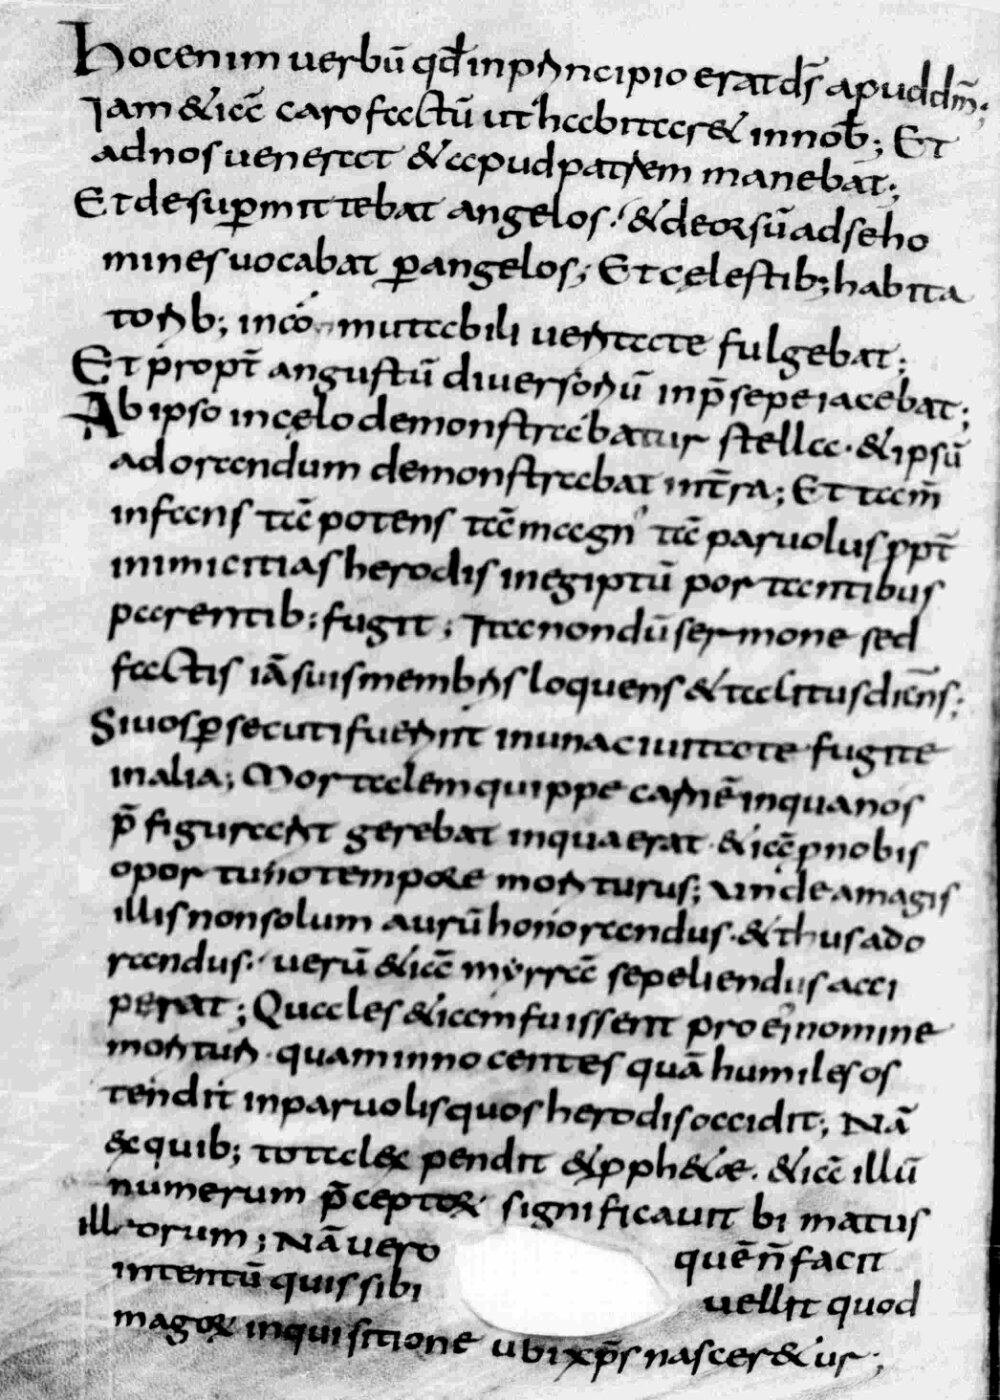 Hoc enim uerbū qđ in principio erat dš apud dm̄;
Iam & iā caro factū ut habitar& in nob̄; Et
ad nos uenerat & apud patrem manebat;
Et desup̱ mittebat angelos; & deorsū ad se ho
mines uocabat p̱ angelos; Et cęlestib; habita
torib; inco mutabili ueritate fulgebat;
Et propt̄ angustū diuersoriū in p̄sepe iacebat;
Ab ipso in cęlo demonstrabatur stella. & ipsū
adorandum demonstrabat in t̄ra; Et tam̄
infans tā potens tā magn' tā paruolus ꝓpt̄
inimicitias herodis in egiptū portantibus
parentib; fugit; Ita nondū sermone sed
factis iā suis membris loquens & tacitus dicēns;
Si uos p̱secuti fuerint in una ciuitate fugite
in alia; Mortalem quippe carnē in qua nos
p̄figurarit gerebat in qua erat & iā p nobis
oportuno tempore moriturus; unde a magis
illis non solum aurū honorandus. & thus ado
randus. uerū & iā myrrā sepeliendus acci
perat; Quales & iam fuissent pro ei' nomine
morituri. quam innocentes quā humiles os
tendit in paruolis quos herodis occidit; Nā
ex quib; tota lex pendit & p̱ph&æ. & iā illū
numerum p̄ceptoꝝ significauit bimatus
illorum; Nā uero quē n̄ facit
intentū quis sibi uellit quod
magoꝝ inquisitione ubi xp̄s nascer&ur;